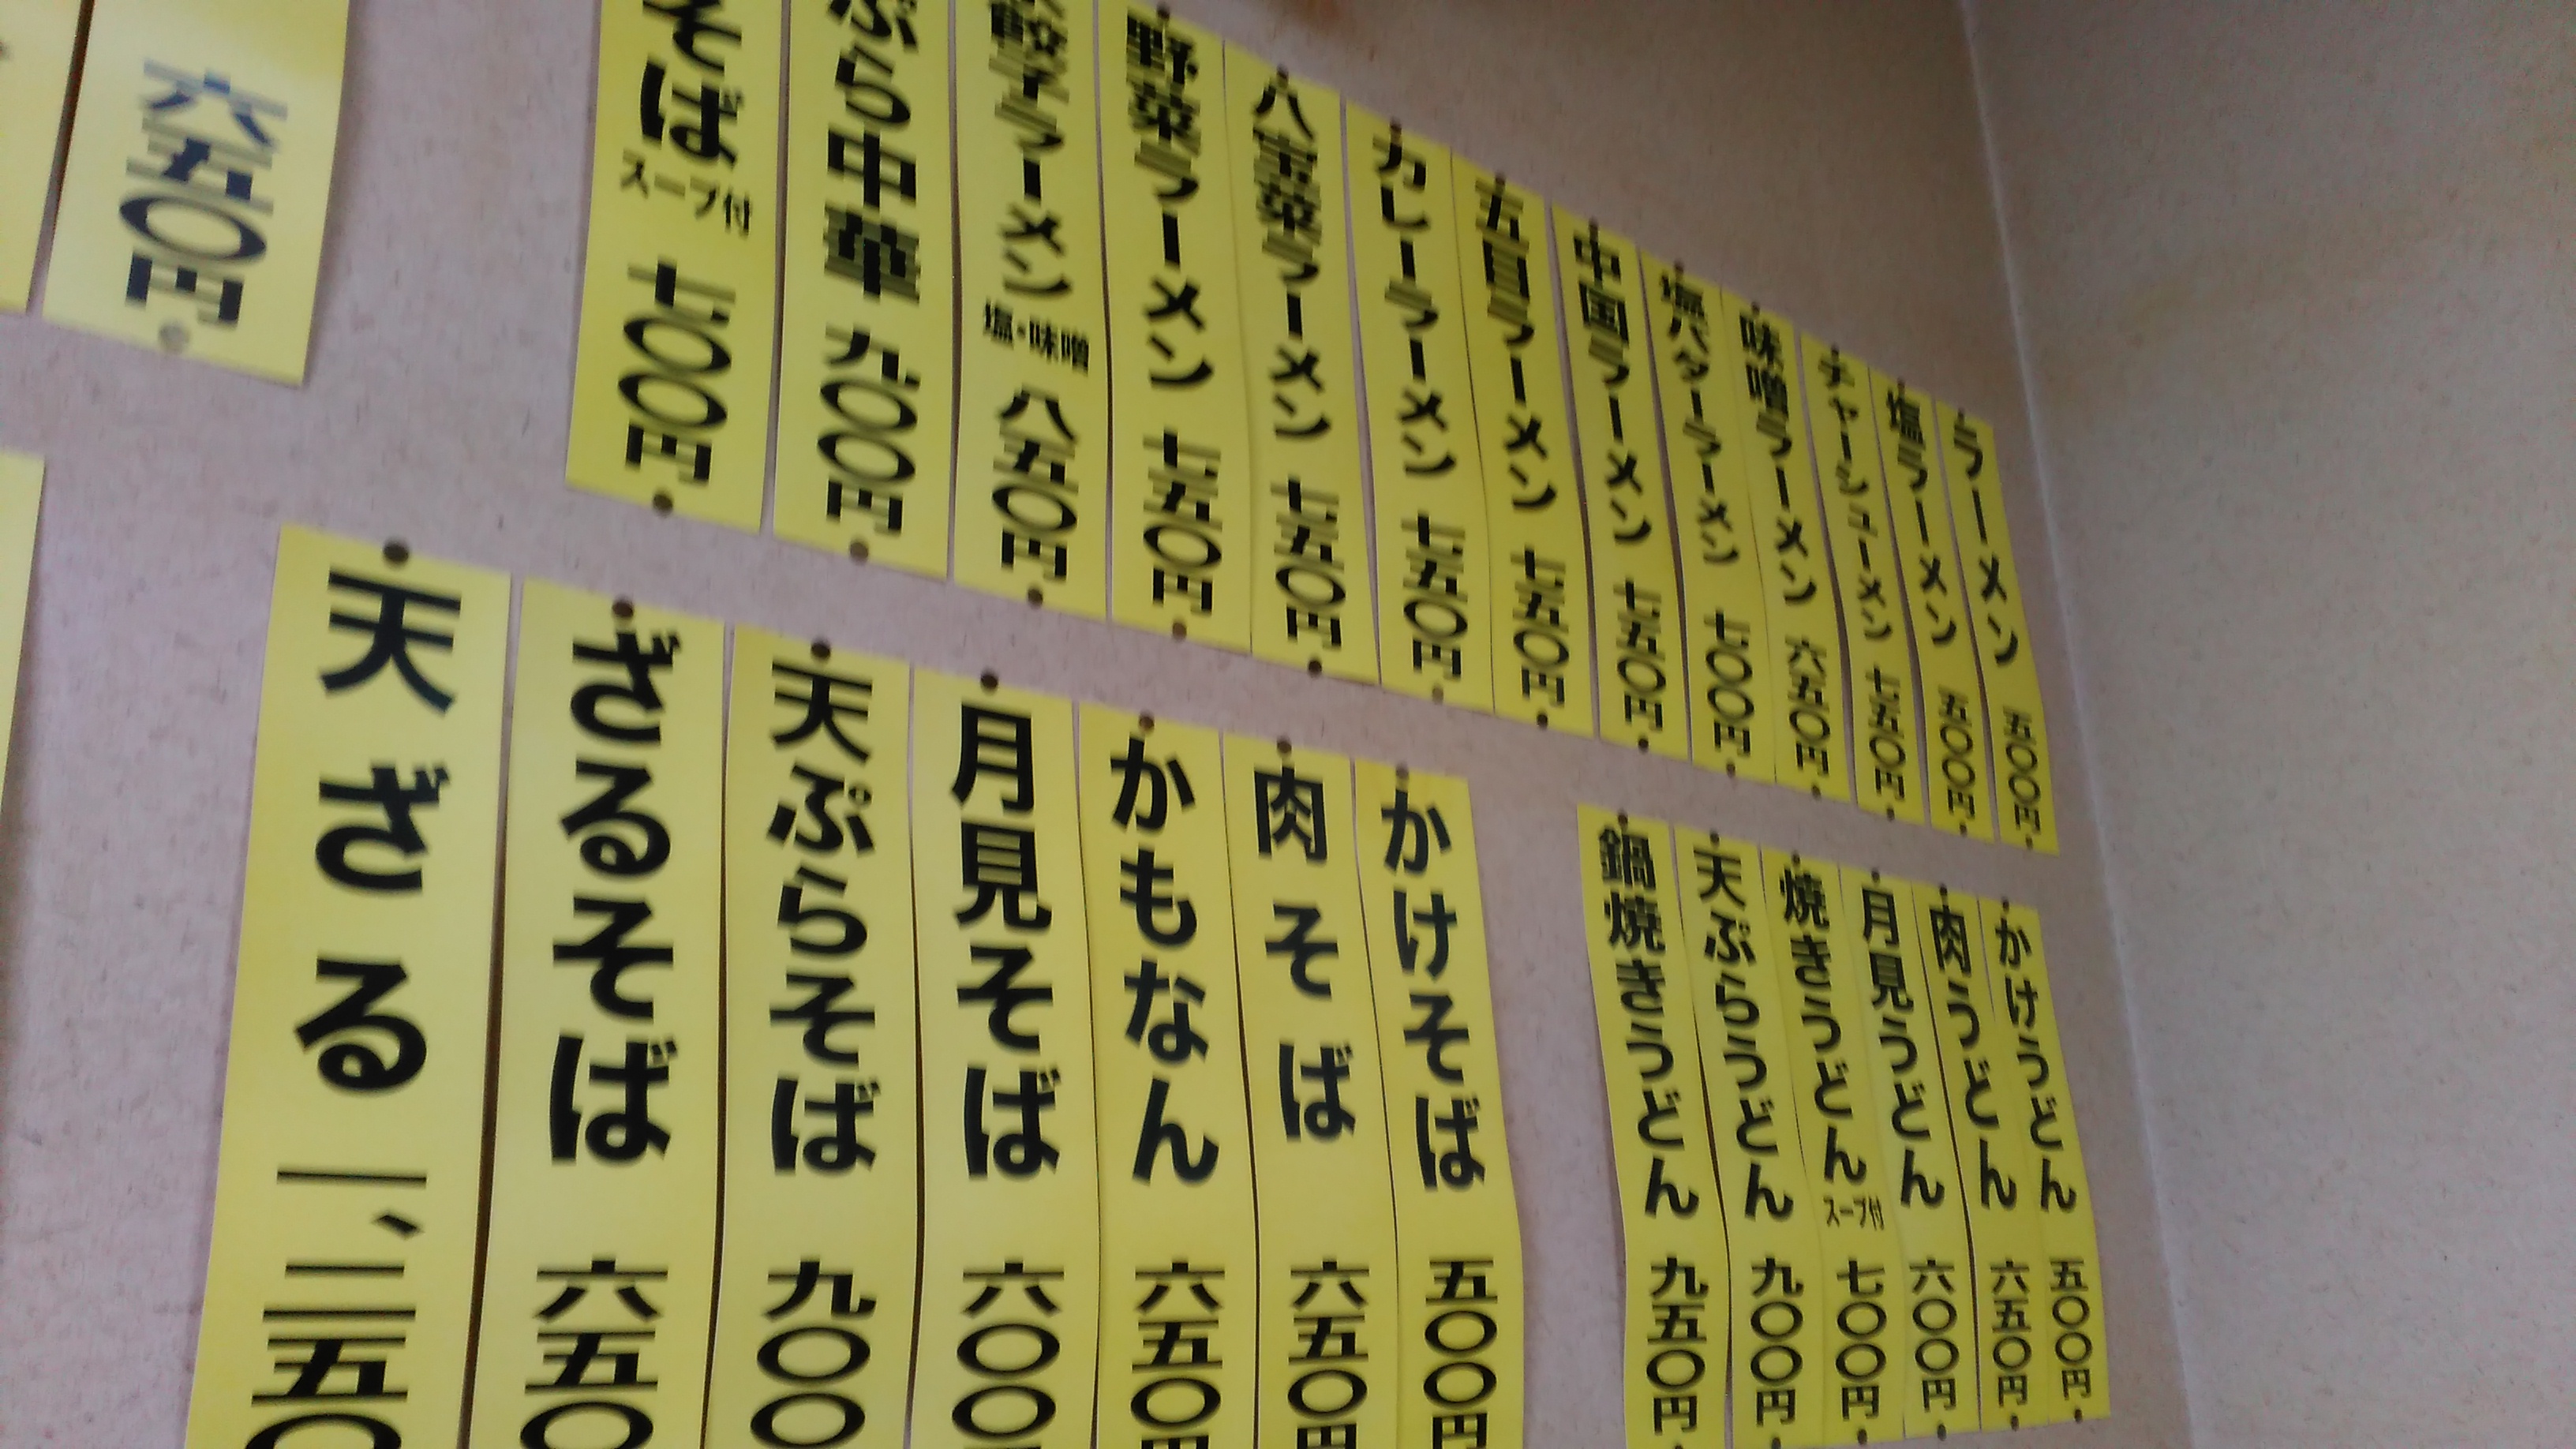 ラーメン 五〇〇円
塩ラーメン 五〇〇円
チャーシューメン 七五〇円
味噌ラーメン 六五〇円
塩バターラーメン 七〇〇円
中国ラーメン 七五〇円
五目ラーメン 七五〇円
カレーラーメン 七五〇円
八宝菜ラーメン 七五〇円
野菜ラーメン 七五〇円
餃子ラーメン 塩・味噌 八五〇円
ぷら中華 九〇〇円
そば スープ付 七〇〇円
六五〇円
かけうどん 五〇〇円
肉うどん 六五〇円
月見うどん 六〇〇円
焼きうどん スープ付 七〇〇円
天ぷらうどん 九〇〇円
鍋焼きうどん 九五〇円
かけそば 五〇〇円
肉そば 六五〇円
かもなん 六五〇円
月見そば 六〇〇
天ぷらそば 九〇〇
ざるそば 六五〇
天ざる 一、二五〇